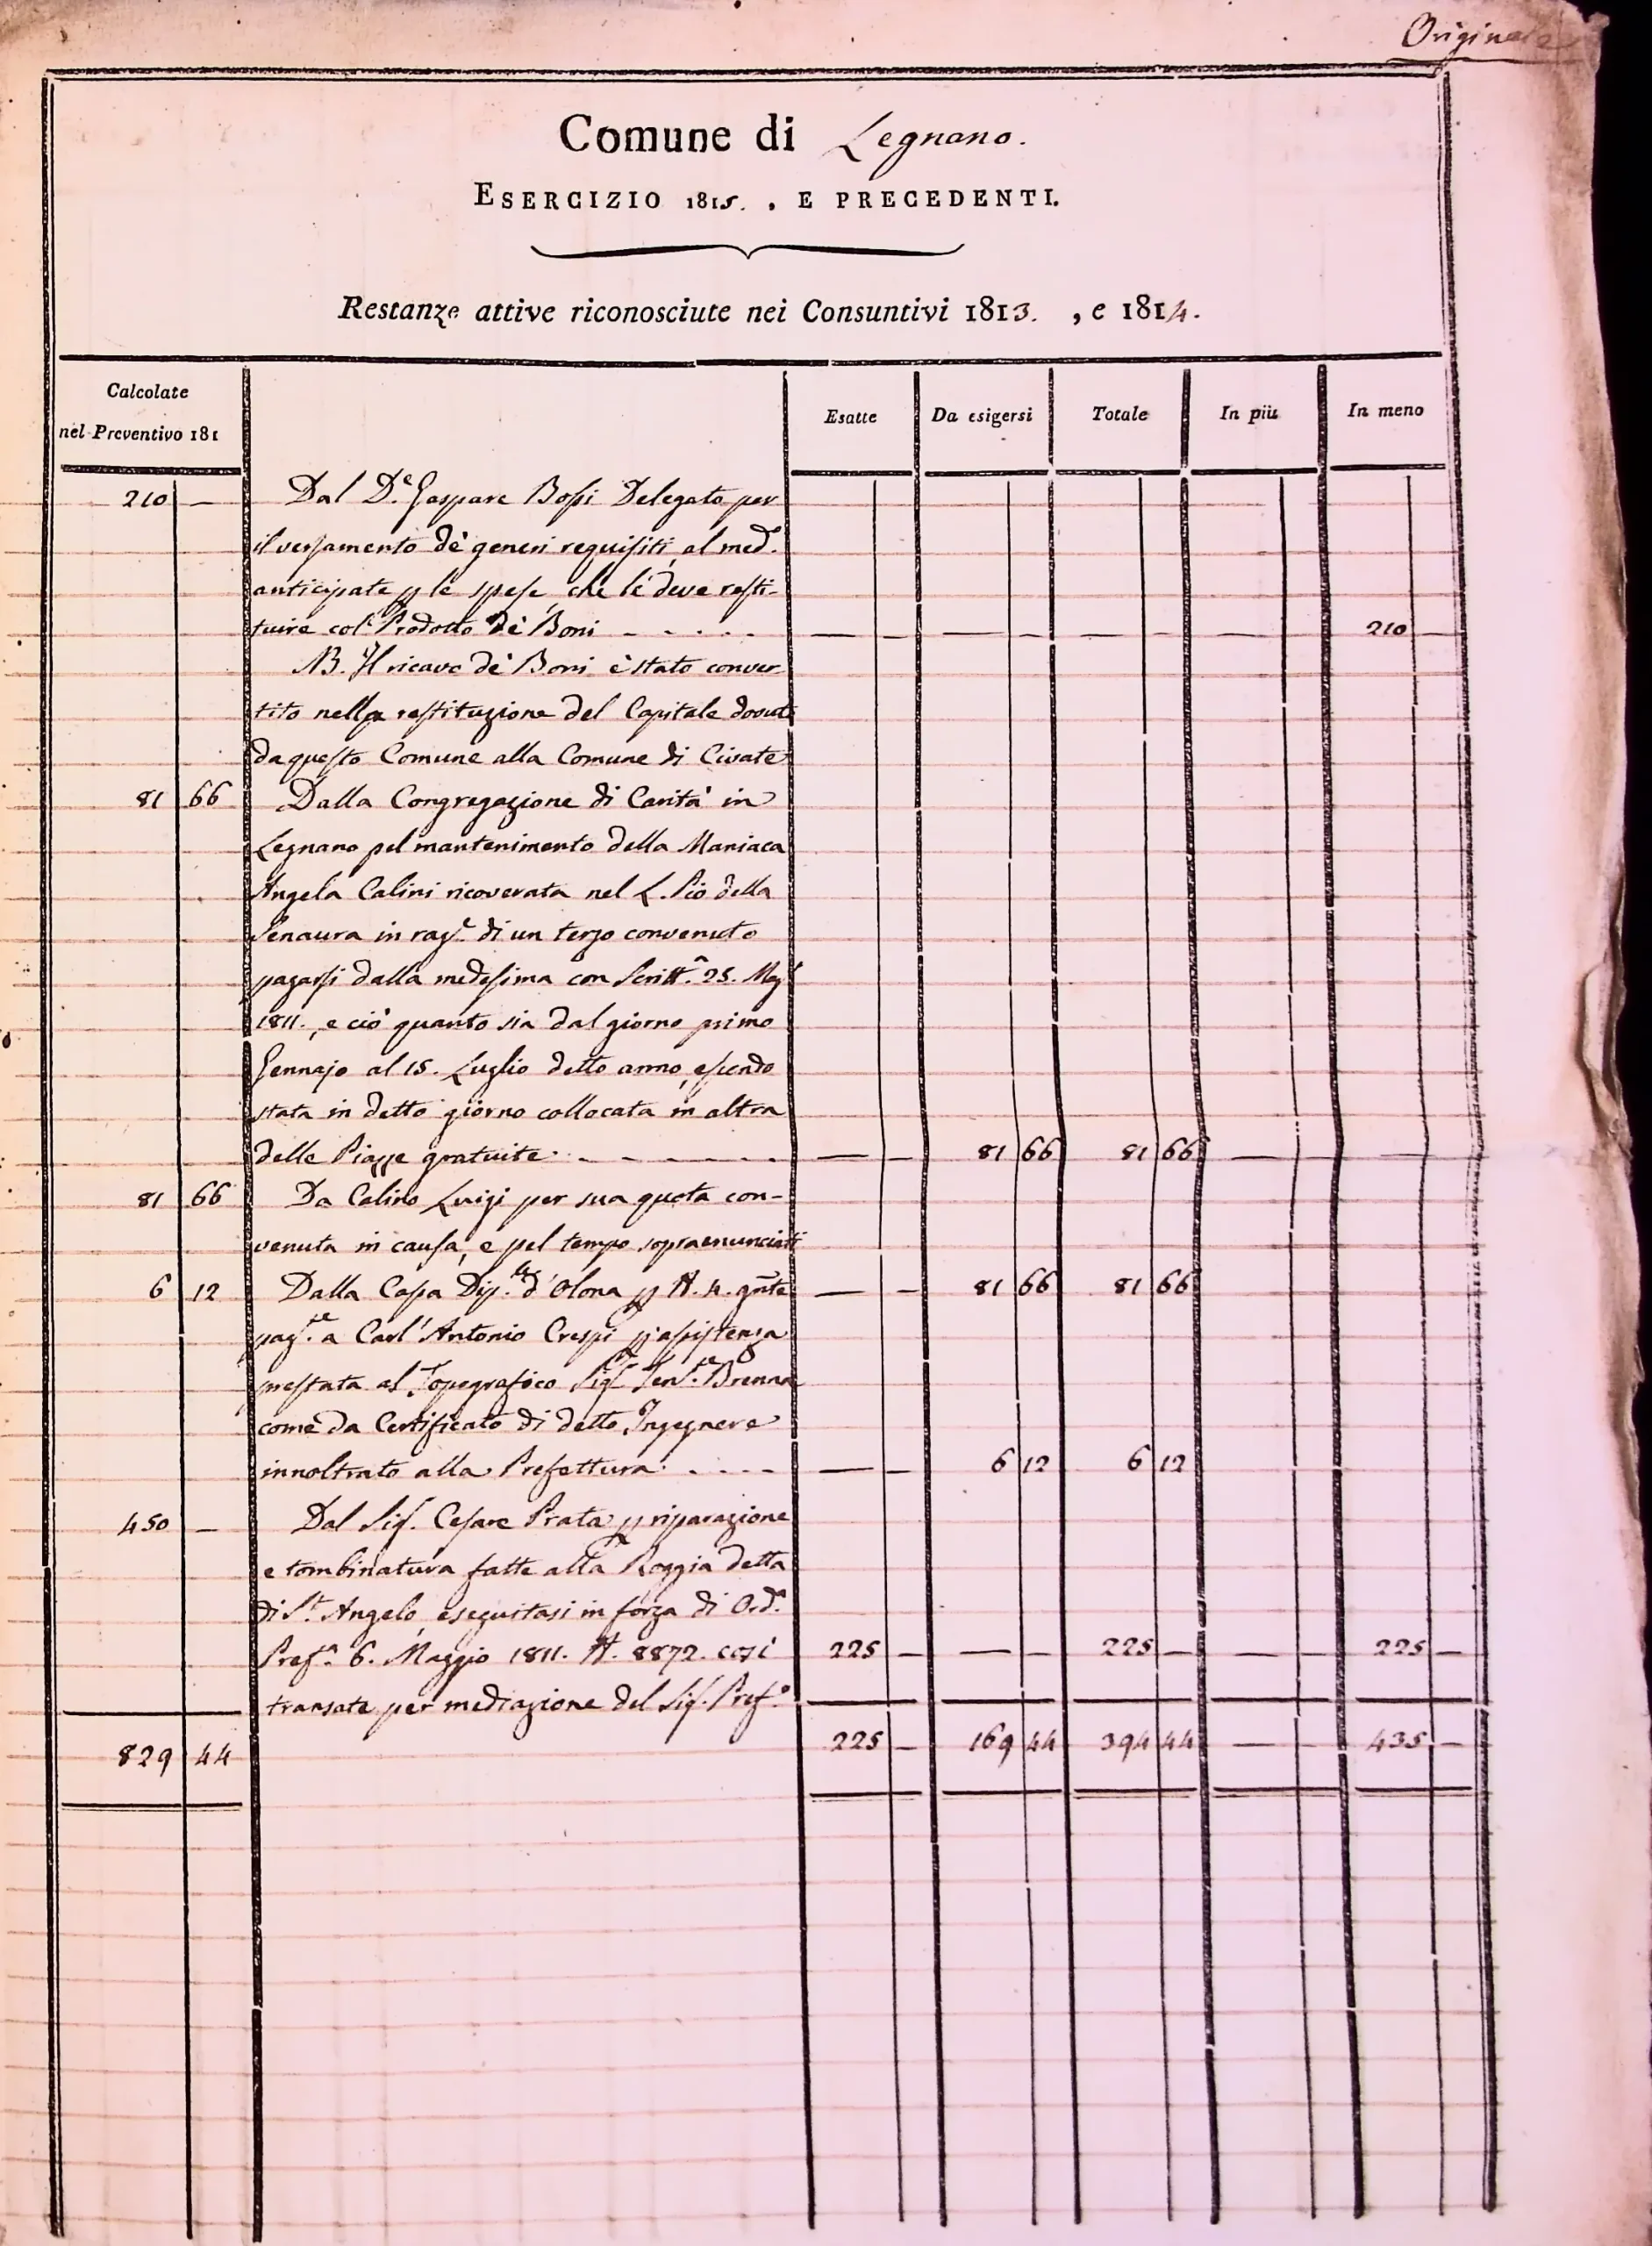 Originale
Comune di Legnano.
ESERCIZIO 1815. , E PRECEDENTI.
Restanze attive riconosciute nei Consuntivi 1813. , e 1814.
Calcolate
nel Preventivo 181
Esatte Da esigersi Totale In più In meno
210 — Dal D.e Gaspare Bossi Delegato per
il versamento de' generi requisiti, al med.o
anticipate p le spese, che le deve resti-
tuire col Prodotto de' Boni - . . . . — — — — — — — — 210 —
NB. Il ricavo de' Boni è stato conver
tito nella restituzione del Capitale dovuto
da questo Comune alla Comune di Civate
81 66 Dalla Congregazione di Carità in
Legnano pel mantenimento della Maniaca
Angela Calini ricoverata nel L. Pio della
Senaura in rag.e di un terzo convenuto
pagarsi dalla medesima con Scritt.a 25. Mag.
1811., e ciò quanto sia dal giorno primo
Gennajo al 15. Luglio detto anno, essendo
stata in detto giorno collocata in altra
delle Piazze gratuite. . - - - - - — — 81 66 81 66 — — — —
81 66 Da Calino Luigi per sua quota con-
venuta in causa, e pel tempo sopraenunciato
6 12 Dalla Cassa Dip.le d'Olona p N. 4. gnte — — 81 66 81 66
pag.te a Carl'Antonio Crespi p assistenza
prestata al Topografico Sig.r Ten.te Brenna
come da Certificato di detto Ingegnere
innoltrato alla Prefettura. . - - - — — 6 12 6 12
450 — Dal Sig. Cesare Prata p riparazione
e tombinatura fatte alla Roggia detta
di S.t Angelo, eseguitasi in forza di Ord.a
Pref.a 6. Maggio 1811. N. 8872. così 225 — — — 225 — — — 225 —
transate per mediazione del Sig. Pref.o
829 44 225 — 169 44 394 44 — — 435 —